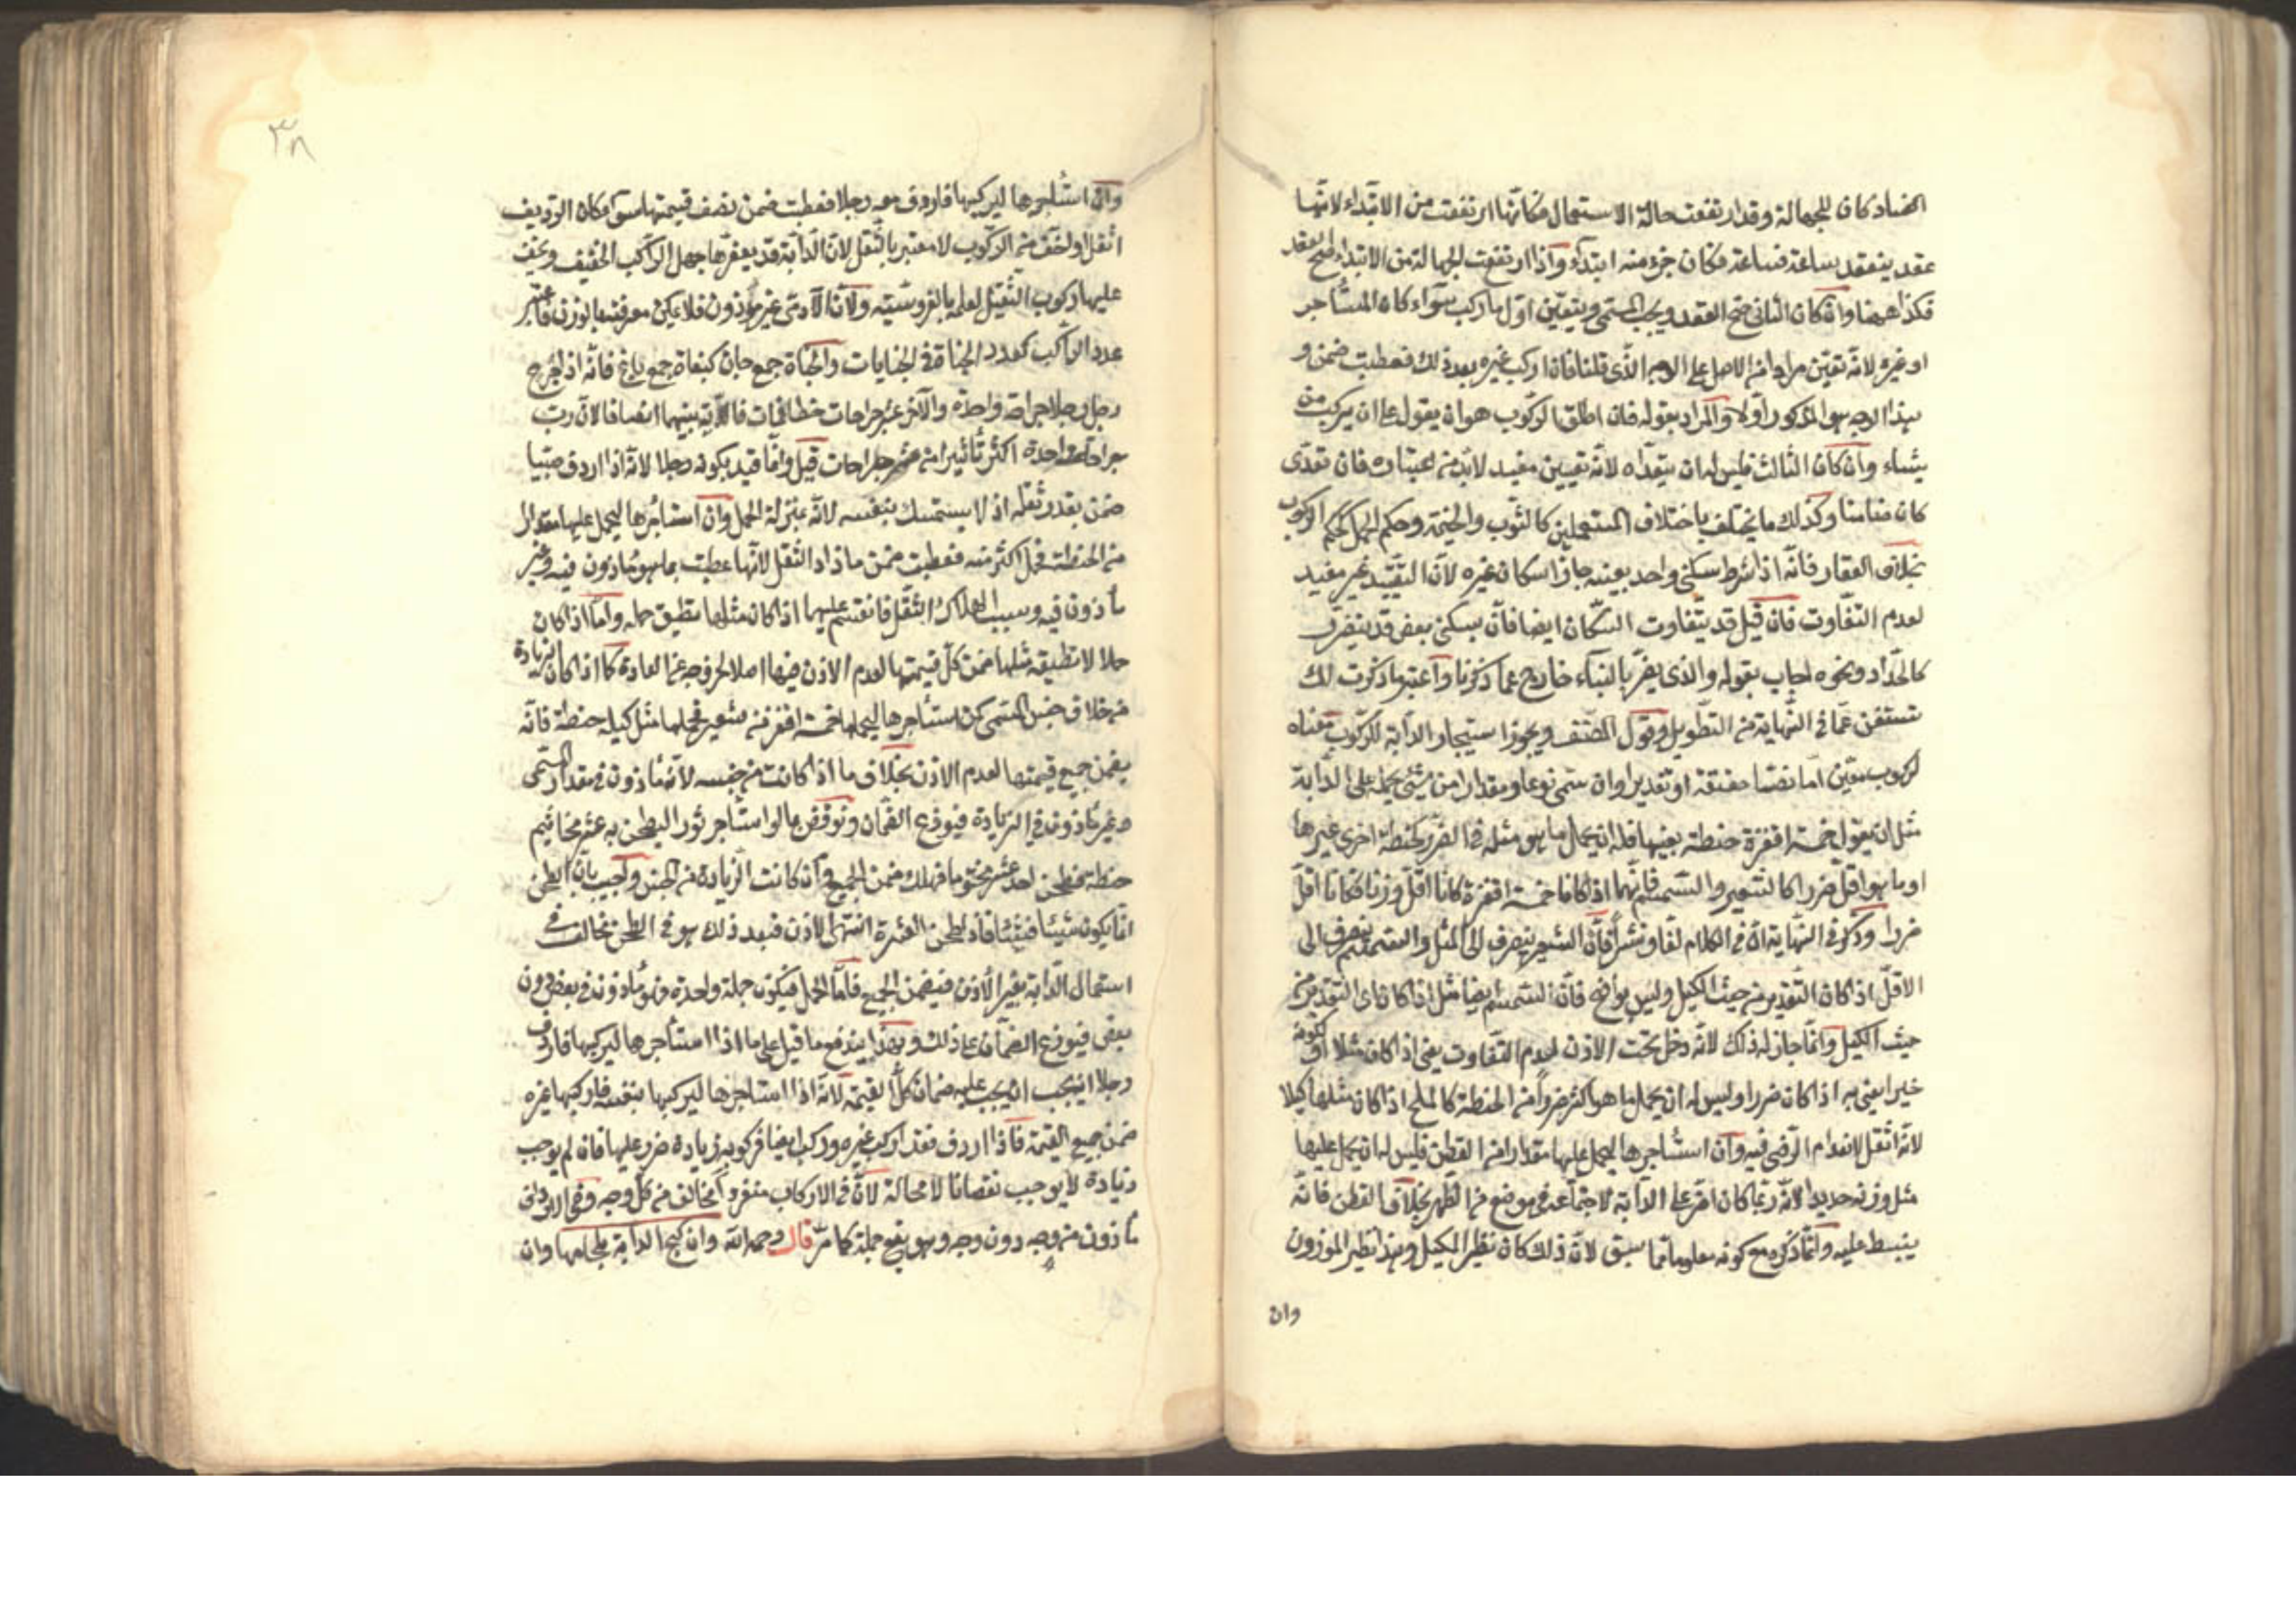 الفساد كان للجهالة وقد ارتفعت حالة الاستعمال فكانها ارتفعت من الابتداء لانها
عقد ينعقد ساعة فساعة فكان جزء منه ابتداء واذا ارتفعت الجهالة من الابتداء صح العقد
فكذا ههنا وان كان الثاني صح العقد ويجب المسمى ويتعين اول ما ركب سواء كان المستأجر
او غيره لانه تعين مرادا من الاصل على الوجه الذي قلنا فان اركب غيره بعد ذلك فعطبت ضمن و
هذا الوجه هو المذكور اولا والمراد بقوله فان اطلق الركوب هو ان يقول على ان يركب من
يشاء وان كان الثالث فليس له ان يتعداه لانه تعيين مفيد لابد من اعتباره فان تعدى
كان ضامنا وكذلك ما يختلف باختلاف المستعملين كالثوب والخيمة وحكم الحمل كحكم الركوب
بخلاف العقار فانه اذا شرط سكنى واحد بعينه جاز اسكان غيره لان التقييد غير مفيد
لعدم التفاوت فان قيل قد يتفاوت السكان ايضا فان سكنى بعض قد يتضرر
كالحداد ونحوه اجاب بقوله والذي يضر بالبناء خارج عما ذكرنا واعتبر ما ذكرت لك
تستغن عما في النهاية من التطويل وقول المصنف ويجوز استيجار الدابة للركوب معناه
لركوب معين اما نصا حقيقة او تقديرا وان سمى نوعا ومقدارا من شيئ يحمل على الدابة
مثل ان يقول خمسة اقفزة حنطة بعينها فله ان يحمل ما هو مثله في الضرر كحنطة اخرى غيرها
او ما هو اقل ضررا كالشعير والسمسم فانهما اذا كانا خمسة اقفزة كانا اقل وزنا فكانا اقل
ضررا وذكر في النهاية ان في الكلام لفا ونشرا فان الشعير ينصرف الى المثل والسمسم ينصرف الى
الاقل اذا كان التقدير من حيث الكيل وليس بواضح فان السمسم ايضا مثل اذا كان اى التقدير من
حيث الكيل وانما جاز له ذلك لانه دخل تحت الاذن لعدم التفاوت يعنى اذا كان مثلا او لكونه
خيرا يعنى به اذا كان ضررا وليس له ان يحمل ما هو اكثر ضررا من الحنطة كالملح اذا كان مثلها كيلا
لانه اثقل لانعدام الرضى فيه وان استأجرها ليحمل عليها مقدارا من القطن فليس له ان يحمل عليها
مثل وزنه حديدا لانه ربما كان اضر على الدابة لاجتماعه في موضع من الظهر بخلاف القطن فانه
ينبسط عليه وانما ذكره مع كونه معلوما مما سبق لان ذلك كان نظير المكيل وهذا نظير الموزون
وان
٣٨
وان استأجرها ليركبها فاردف معه رجلا فعطبت ضمن نصف قيمتها سواء كان الرديف
اثقل او اخف من الركوب لا معتبر بالثقل لان الدابة قد يعقرها جهل الراكب الخفيف ويخف
عليها ركوب الثقيل لعلمه بالفروسية ولان الآدمى غير موزون فلا يمكن معرفته بالوزن فاعتبر
عدد الراكب كعدد الجناة في الجنايات والجناة جمع جان كبغاة جمع باغ فانه اذا جرح
رجل رجلا جراحة واحدة والآخر عشر جراحات خطا فمات فالدية بينهما انصافا لان رب
جراحة واحدة اكثر تأثيرا من عشر جراحات قيل وانما قيد بكونه رجلا لانه اذا اردف صبيا
ضمن بقدر ثقله اذ لا يستمسك بنفسه لانه بمنزلة الحمل وان استأجرها ليحمل عليها مقدارا
من الحنطة فحمل اكثر منه فعطبت ضمن ما زاد الثقل لانها عطبت بما هو مأذون فيه وغير
مأذون فيه وسبب الهلاك الثقل فانقسم عليهما اذا كان مثلها تطيق حمله واما اذا كان
حملا لا تطيقه مثلها ضمن كل قيمتها لعدم الاذن فيها اصلا لخروجه عن العادة كما اذا كان الزيادة
من خلاف جنس المسمى كمن استأجرها ليحملها خمسة اقفزة شعير فحملها مثل كيله حنطة فانه
يضمن جميع قيمتها لعدم الاذن بخلاف ما اذا كانت من جنسه لانه مأذون في مقدار المسمى
وغير مأذون في الزيادة فيوزع الضمان ونوقض بما لو استأجر ثورا ليطحن به عشر مخاتيم
حنطة فطحن احد عشر مختوما فهلك ضمن الجميع وان كانت الزيادة من الجنس واجيب بان الطحن
انما يكون شيئا فشيئا فاذا طحن العشرة انتهى الاذن فبعد ذلك هو في الطحن مخالف في
استعمال الدابة بغير الاذن فيضمن الجميع فاما الحمل فيكون جملة واحدة فهو مأذون في بعض دون
بعض فيوزع الضمان على ذلك وبهذا يندفع ما قيل على ما اذا استأجرها ليركبها فاردف
رجلا اينبغى ان يجب عليه ضمان كل القيمة لانه اذا استأجرها ليركبها بنفسه فاركبها غيره
ضمن جميع القيمة فاذا اردف فقد اركب غيره وركب ايضا فركوبه زيادة ضرر عليها فان لم يوجب
زيادة لا يوجب نقصانا لا محالة لان في الاركاب منفردا مخالف من كل وجه وفي الارداف
مأذون من وجه دون وجه وهو يقع جملة كما مر قال رحمه الله وان كبح الدابة بلجامها وان